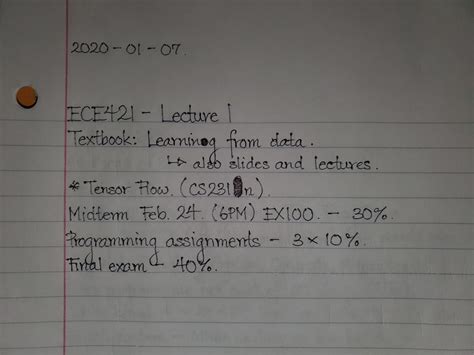 2020-01-07.
ECE421 - Lecture 1
Textbook: Learning from data.
↳ also slides and lectures.
* Tensor Flow. (CS231n).
Midterm Feb. 24. (6PM) EX100. - 30%.
Programming assignments - 3 × 10%.
Final exam - 40%.